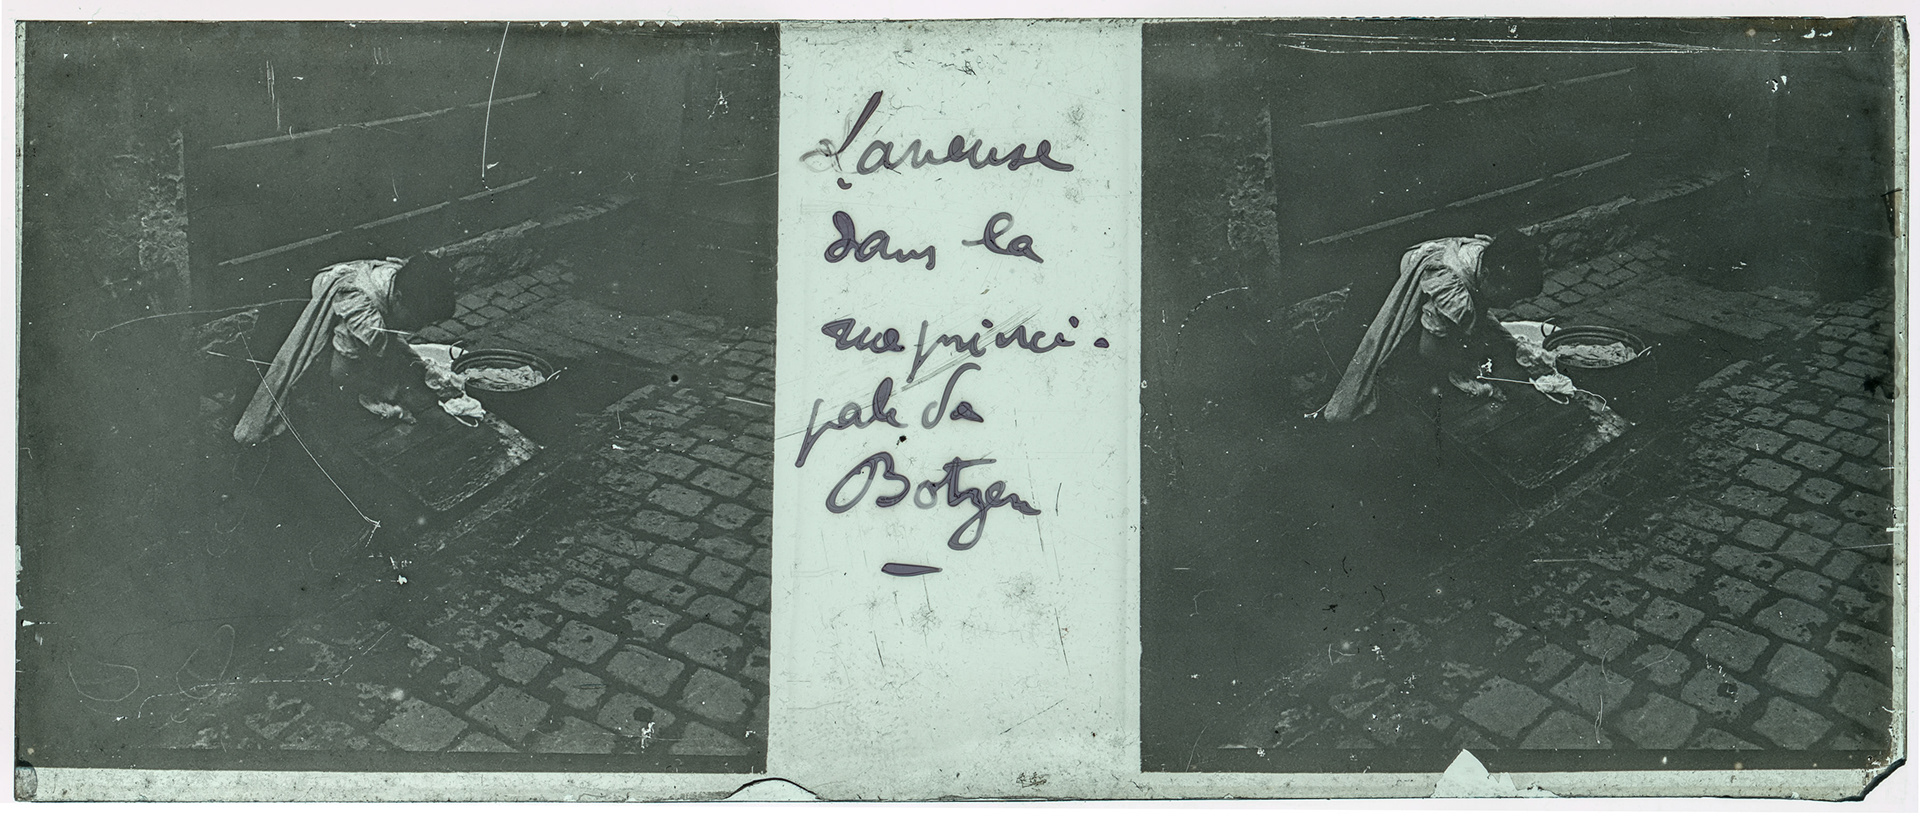 Laveuse
dans la
rue princi-
pale de
Botzen